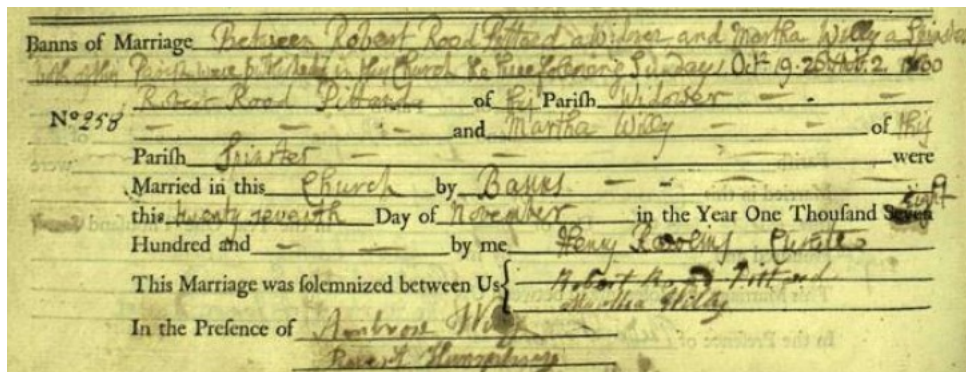 Banns of Marriage Between Robert Rood Pittard a Widower and Martha Willy a Spinster
both of this Parish were published in this Church the three following Sundays Octr 19. 26 Nov. 2. 1800
Robert Rood Pittard of this Parish Widower
No 258 and Martha Willy of this
Parish Spinster were
Married in this Church by Banns
this twenty seventh Day of November in the Year One Thousand Seven Eight
Hundred and by me Henry Rawlins Curate
This Marriage was solemnized between Us { Robert Rood Pittard
Martha Willy
In the Presence of Ambrose Willy
Robert Humphreys